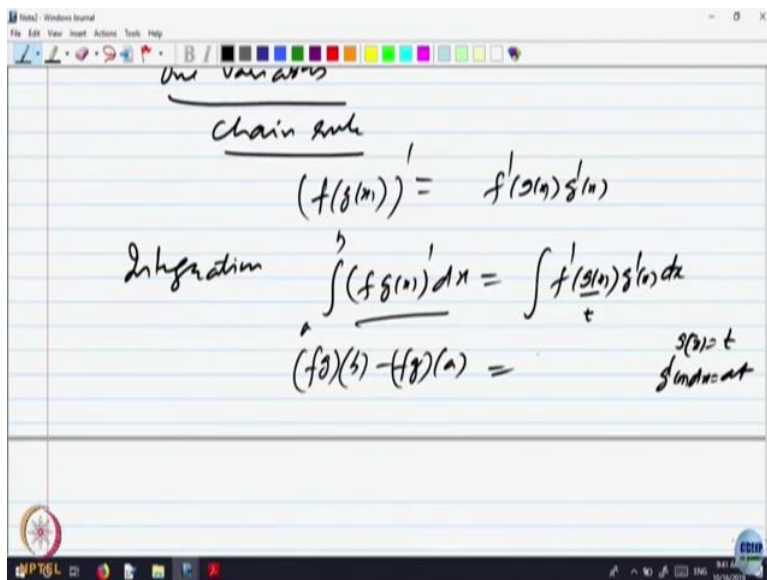 Note2 - Windows Journal
File Edit View Insert Actions Tools Help
One Variables
Chain rule
(f(g(x))' = f'(g(x)) g'(x)
Integration ∫_a^b (f g(x))' dx = ∫ f'(g(x)) g'(x) dx
t
g(x) = t
(fg)(b) - (fg)(a) = g'(x)dx = dt
NPTEL
ENG